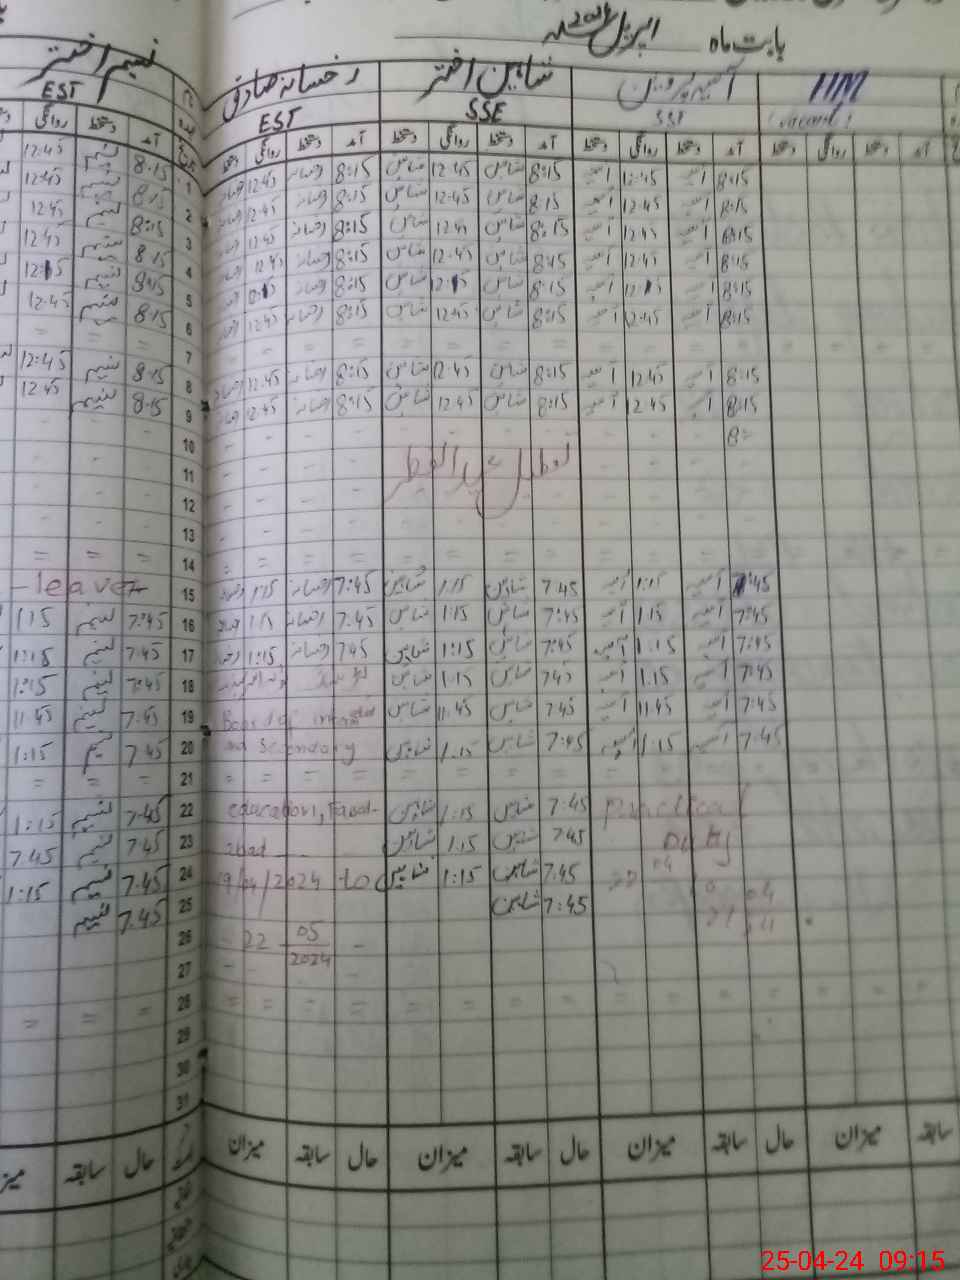 بابت ماہ اپریل 2024ء
HM آسیہ پروین شاہین اختر رخسانہ صادق نسیم اختر
(vacant) SST SSE EST EST
آمد دستخط روانگی دستخط آمد دستخط روانگی دستخط آمد دستخط روانگی دستخط آمد دستخط روانگی دستخط تاریخ آمد دستخط روانگی
8:15 آسیہ 12:45 آسیہ 8:15 شاہین 12:45 شاہین 8:15 رخسانہ 12:45 رخسانہ 1 8:15 نسیم 12:45
8:15 آسیہ 12:45 آسیہ 8:15 شاہین 12:45 شاہین 8:15 رخسانہ 12:45 رخسانہ 2 8:15 نسیم 12:45
8:15 آسیہ 12:45 آسیہ 8:15 شاہین 12:45 شاہین 8:15 رخسانہ 12:45 رخسانہ 3 8:15 نسیم 12:45
8:15 آسیہ 12:45 آسیہ 8:15 شاہین 12:45 شاہین 8:15 رخسانہ 12:45 رخسانہ 4 8:15 نسیم 12:45
8:15 آسیہ 12:15 آسیہ 8:15 شاہین 12:15 شاہین 8:15 رخسانہ 5 8:15 نسیم 12:15
8:15 آسیہ 12:45 آسیہ 8:15 شاہین 12:45 شاہین 8:15 رخسانہ 12:45 رخسانہ 6 8:15 نسیم 12:45
= = = = = = = = = = = = 7 = = =
8:15 آسیہ 12:45 آسیہ 8:15 شاہین 12:45 شاہین 8:15 رخسانہ 12:45 رخسانہ 8 8:15 نسیم 12:45
8:15 آسیہ 12:45 آسیہ 8:15 شاہین 12:45 شاہین 8:15 رخسانہ 12:45 رخسانہ 9 8:15 نسیم 12:45
8: 10
تعطیل عید الفطر 11
12
13
14 = = =
7:45 آسیہ 1:15 آسیہ 7:45 شاہین 1:15 شاہین 7:45 رخسانہ 1:15 رخسانہ 15 - leave -
7:45 آسیہ 1:15 آسیہ 7:45 شاہین 1:15 شاہین 7:45 رخسانہ 1:15 رخسانہ 16 7:45 نسیم 1:15
7:45 آسیہ 1:15 آسیہ 7:45 شاہین 1:15 شاہین 7:45 رخسانہ 1:15 رخسانہ 17 7:45 نسیم 1:15
7:45 آسیہ 1:15 آسیہ 7:45 شاہین 1:15 شاہین 18 7:45 نسیم 1:15
7:45 آسیہ 11:45 آسیہ 7:45 شاہین 11:45 شاہین Board of 19 7:45 نسیم 11:45
7:45 آسیہ 1:15 آسیہ 7:45 شاہین 1:15 شاہین and Secondary 20 7:45 نسیم 1:15
= = = = = = = = = = = = 21 = = =
practical 7:45 شاہین 1:15 شاہین education, Faisal- 22 7:45 نسیم 1:15
Duty 7:45 شاہین 1:15 شاہین abad 23 7:45 نسیم 7:45
22 04 7:45 شاہین 1:15 شاہین 19/04/2024 to 24 7:45 نسیم 1:15
04 7:45 شاہین 25 7:45 نسیم
- 22 05/2024 - 26
27
= = = = = = = = = = = = 28 = = =
29
30
31
سابقہ میزان حال سابقہ میزان حال سابقہ میزان حال سابقہ میزان حال سابقہ میزان
25-04-24 09:15